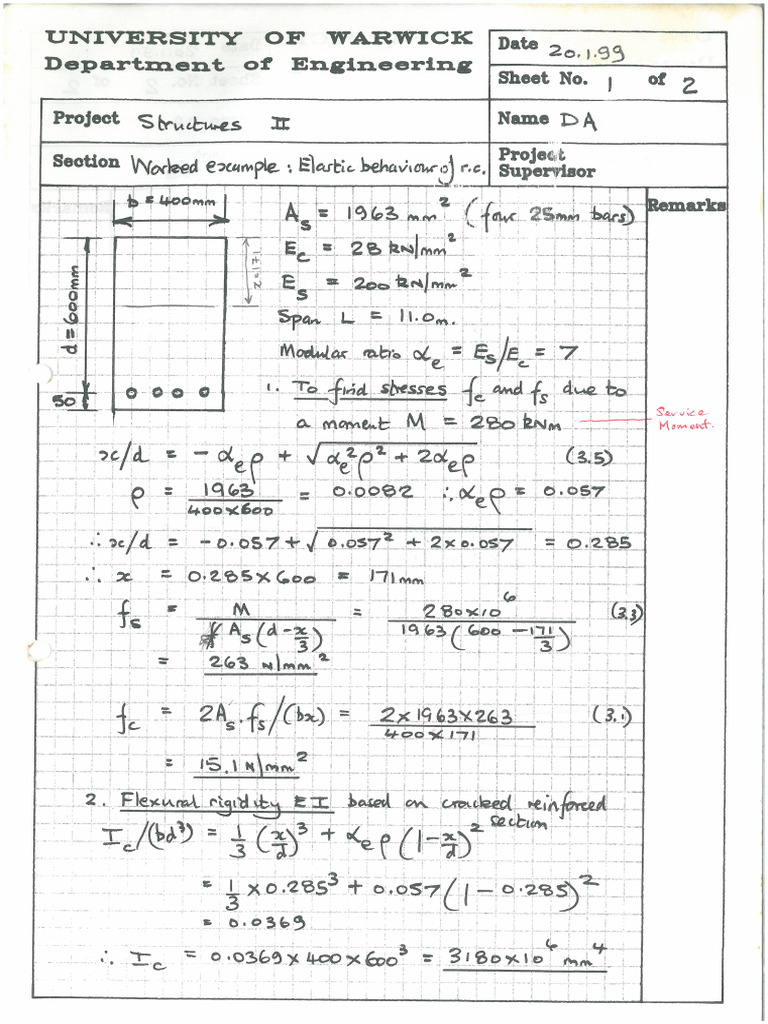 UNIVERSITY OF WARWICK
Department of Engineering
Date 20.1.99
Sheet No. 1 of 2
Project Structures II
Name DA
Section Worked example : Elastic behaviour of r.c.
Project Supervisor
Remarks
b = 400mm
d = 600mm
x = 171
50
A_s = 1963 mm² (four 25mm bars)
E_c = 28 kN/mm²
E_s = 200 kN/mm²
Span L = 11.0m.
Modular ratio α_e = E_s/E_c = 7
1. To find stresses f_c and f_s due to
a moment M = 280 kNm
Service
Moment.
x/d = - α_e ρ + √(α_e² ρ² + 2α_e ρ) (3.5)
ρ = 1963/(400×600) = 0.0082 ∴ α_e ρ = 0.057
∴ x/d = -0.057 + √(0.057² + 2×0.057) = 0.285
∴ x = 0.285×600 = 171mm
f_s = M/(A_s(d - x/3)) = 280×10⁶/(1963(600 - 171/3)) (3.3)
= 263 N/mm²
f_c = 2A_s.f_s/(bx) = (2×1963×263)/(400×171) (3.1)
= 15.1 N/mm²
2. Flexural rigidity EI based on cracked reinforced
section
I_c/(bd³) = 1/3 (x/d)³ + α_e ρ (1 - x/d)²
= 1/3 × 0.285³ + 0.057 (1 - 0.285)²
= 0.0369
∴ I_c = 0.0369 × 400 × 600³ = 3180×10⁶ mm⁴